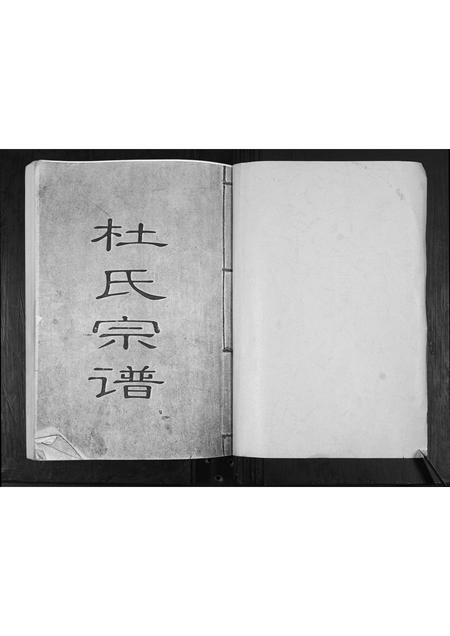 杜氏宗谱